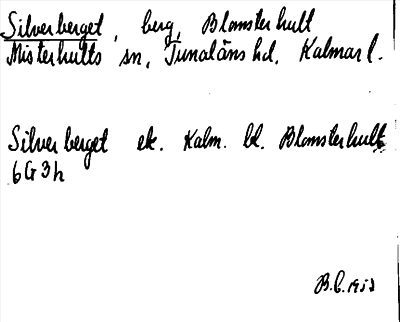 Silverberget, berg, Blomsterhult
Misterhults sn, Tunaläns hd, Kalmar l.
Silverberget ek. Kalm. bl. Blomsterhult
6G3h